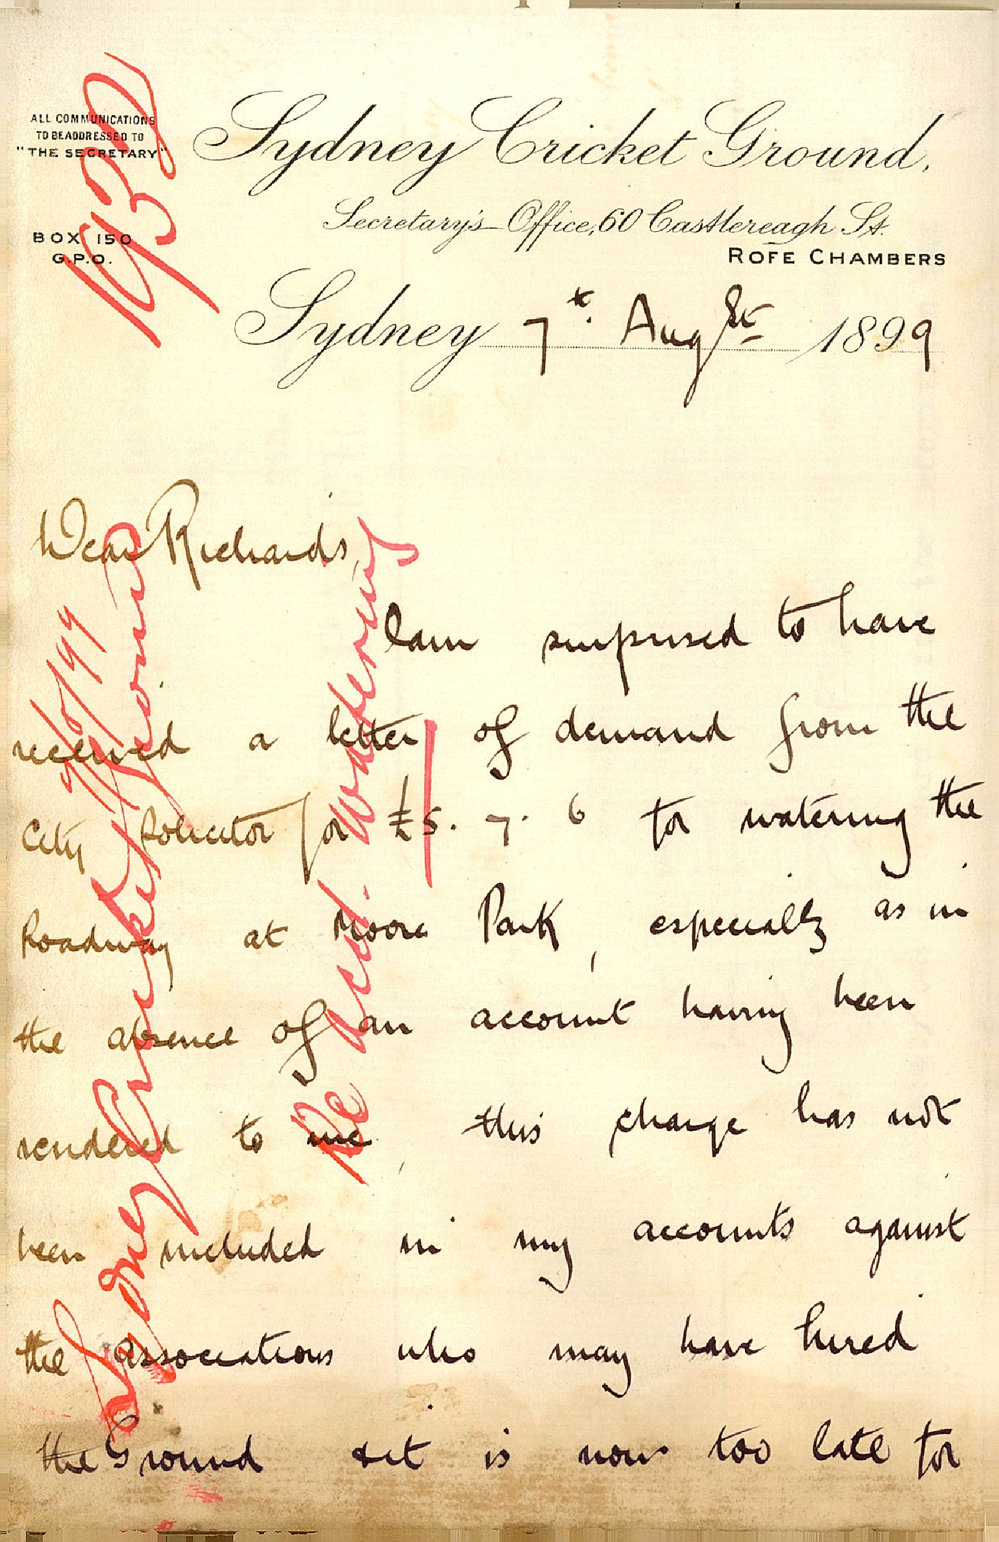 ALL COMMUNICATIONS
TO BE ADDRESSED TO
"THE SECRETARY"
BOX 150
G.P.O.
1932
Sydney Cricket Ground,
Secretary's Office, 60 Castlereagh St.
ROFE CHAMBERS
Sydney 7th Augst 1899
Dear Richards,
I am surprised to have
received a letter of demand from the
City Solicitor for £5. 7. 6 for watering the
Roadway at Moore Park, especially as in
the absence of an account having been
rendered to me, this charge has not
been included in my accounts against
the Associations who may have hired
the Ground & it is now too late for
Sydney Cricket Ground
Re acct. watering